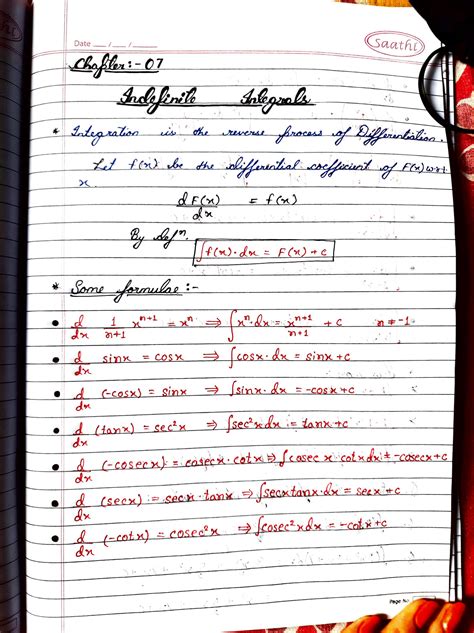 Date __/__/__
Saathi
Chapter:- 07
Indefinite Integrals
* Integration is the reverse process of Differentiation.
Let f(x) be the differential coefficient of F(x) w.r.t
x.
d F(x)/dx = f(x)
By defⁿ.
∫f(x)·dx = F(x) + c
* Some formulae :-
• d/dx 1/n+1 xⁿ⁺¹ = xⁿ ⇒ ∫xⁿ·dx = xⁿ⁺¹/n+1 + c n ≠ -1
• d/dx sinx = cosx ⇒ ∫cosx·dx = sinx + c
• d/dx (-cosx) = sinx ⇒ ∫sinx·dx = -cosx + c
• d/dx (tanx) = sec²x ⇒ ∫sec²xdx = tanx + c
• d/dx (-cosecx) = cosecx·cotx ⇒ ∫cosecx cotxdx = -cosecx + c
• d/dx (secx) = secx·tanx ⇒ ∫secxtanx·dx = secx + c
• d/dx (-cotx) = cosec²x ⇒ ∫cosec²xdx = -cotx + c
Page No.